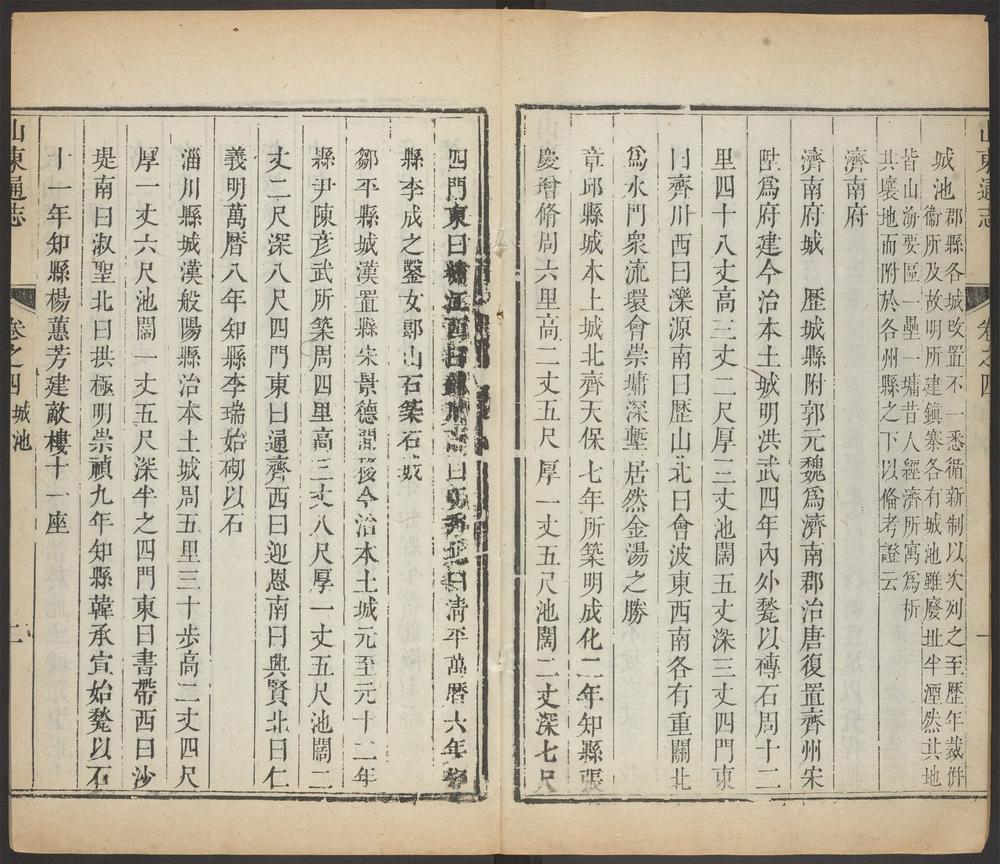 山東通志
卷之四
一
城池
郡縣各城改置不一悉循新制以次列之至歷年裁倂
衞所及故明所建鎭寨各有城池雖廢址半湮然其地
皆山海要區一壘一墉昔人經濟所寓爲析
其壤地而附於各州縣之下以俻考證云
濟南府
濟南府城 歷城縣附郭元魏爲濟南郡治唐復置齊州宋
陞爲府建今治本土城明洪武四年內外甃以磚石周十二
里四十八丈高三丈二尺厚三丈池闊五丈深三丈四門東
曰齊川西曰濼源南曰歷山北曰會波東西南各有重關北
爲水門衆流環會崇墉深塹居然金湯之勝
章邱縣城本土城北齊天保七年所築明成化二年知縣張
慶增脩周六里高二丈五尺厚一丈五尺池闊二丈深七尺
四門東曰繡江西曰錦川南曰明秀北曰清平萬曆六年知
縣李成之鑿女郎山石築石城
鄒平縣城漢置縣宋景德間移今治本土城元至元十二年
縣尹陳彦武所築周四里高三丈八尺厚一丈五尺池闊二
丈二尺深八尺四門東曰連齊西曰迎恩南曰興賢北曰仁
義明萬曆八年知縣李瑞始砌以石
淄川縣城漢般陽縣治本土城周五里三十步高二丈四尺
厚一丈六尺池闊一丈五尺深半之四門東曰書帶西曰沙
堤南曰淑聖北曰拱極明崇禎九年知縣韓承宣始甃以石
十一年知縣楊蕙芳建敵樓十一座
山東通志
卷之四 城池
二